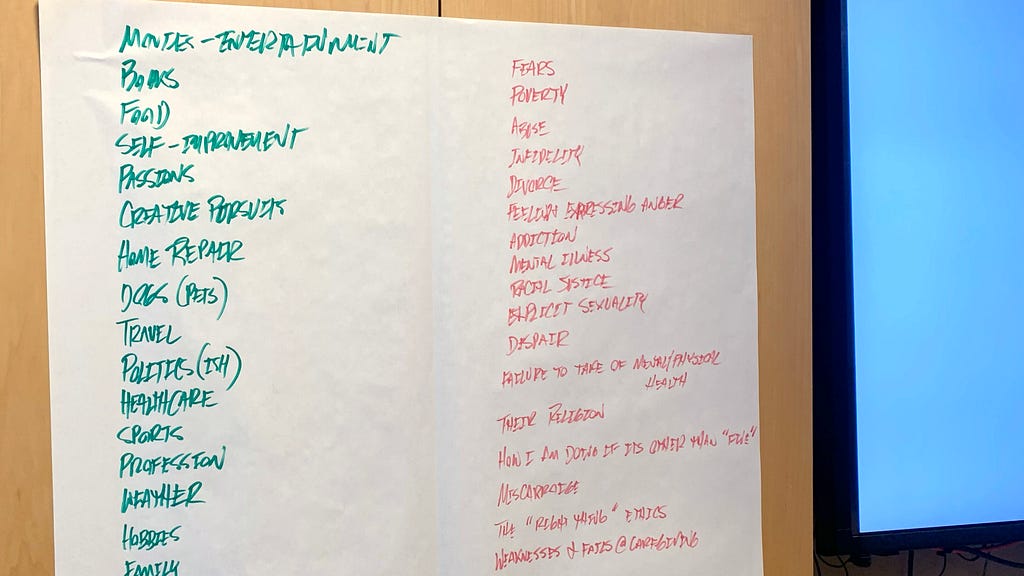 MOVIES - ENTERTAINMENT
BOOKS
FOOD
SELF-IMPROVEMENT
PASSIONS
CREATIVE PURSUITS
HOME REPAIR
DOGS (PETS)
TRAVEL
POLITICS (ISH)
HEALTHCARE
SPORTS
PROFESSION
WEATHER
HOBBIES
FAMILY
FEARS
POVERTY
ABUSE
INFIDELITY
DIVORCE
FEELING EXPRESSING ANGER
ADDICTION
MENTAL ILLNESS
RACIAL JUSTICE
EXPLICIT SEXUALITY
DESPAIR
FAILURE TO TAKE OF MENTAL/PHYSICAL
HEALTH
THEIR RELIGION
HOW I AM DOING IF ITS OTHER THAN "FINE"
MISCARRIAGE
THE "RIGHT THING" ETHICS
WEAKNESSES & FAILS @ CAREGIVING